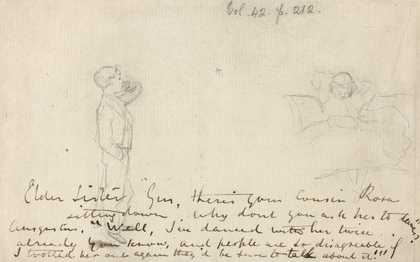 Vol. 42. p. 212.
Elder Sister "Gus, there's your Cousin Rosa
sitting down why don't you ask her to dance
Augustus, "Well, I've danced with her twice
already you know, and people are so disagreeable if
I trotted her out again they'd be sure to talk about it"!!